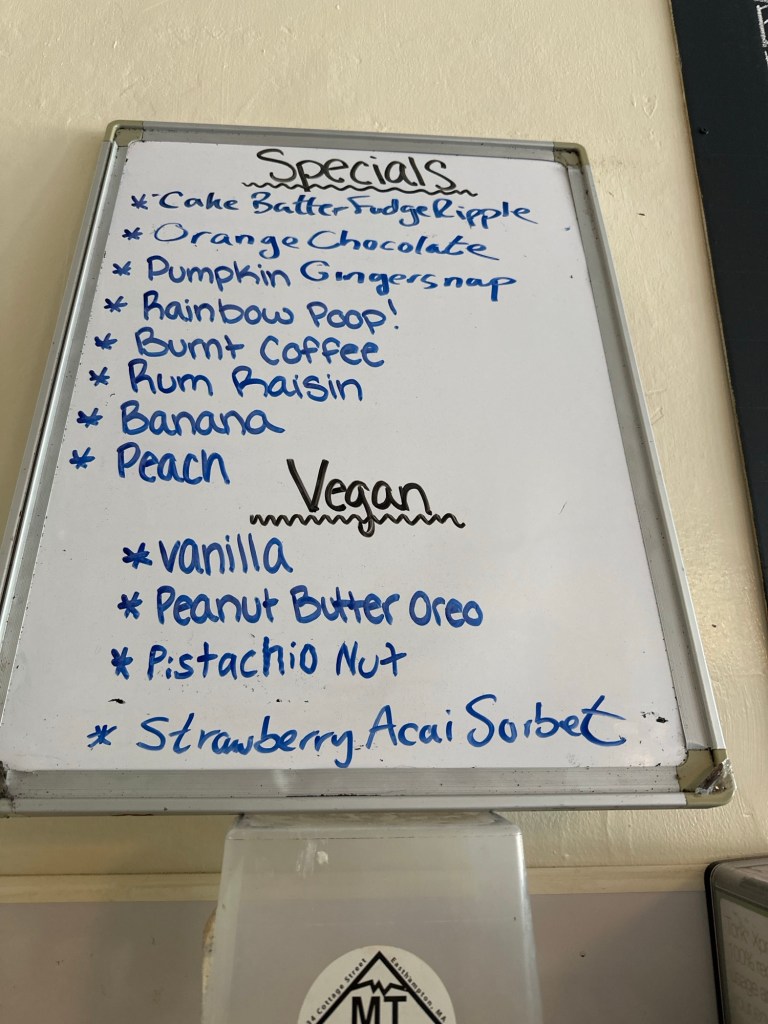 Specials
* Cake Batter Fudge Ripple
* Orange Chocolate
* Pumpkin Gingersnap
* Rainbow Poop!
* Burnt Coffee
* Rum Raisin
* Banana
* Peach
Vegan
* Vanilla
* Peanut Butter Oreo
* Pistachio Nut
* Strawberry Acai Sorbet
Cottage Street Easthampton, MA
MT